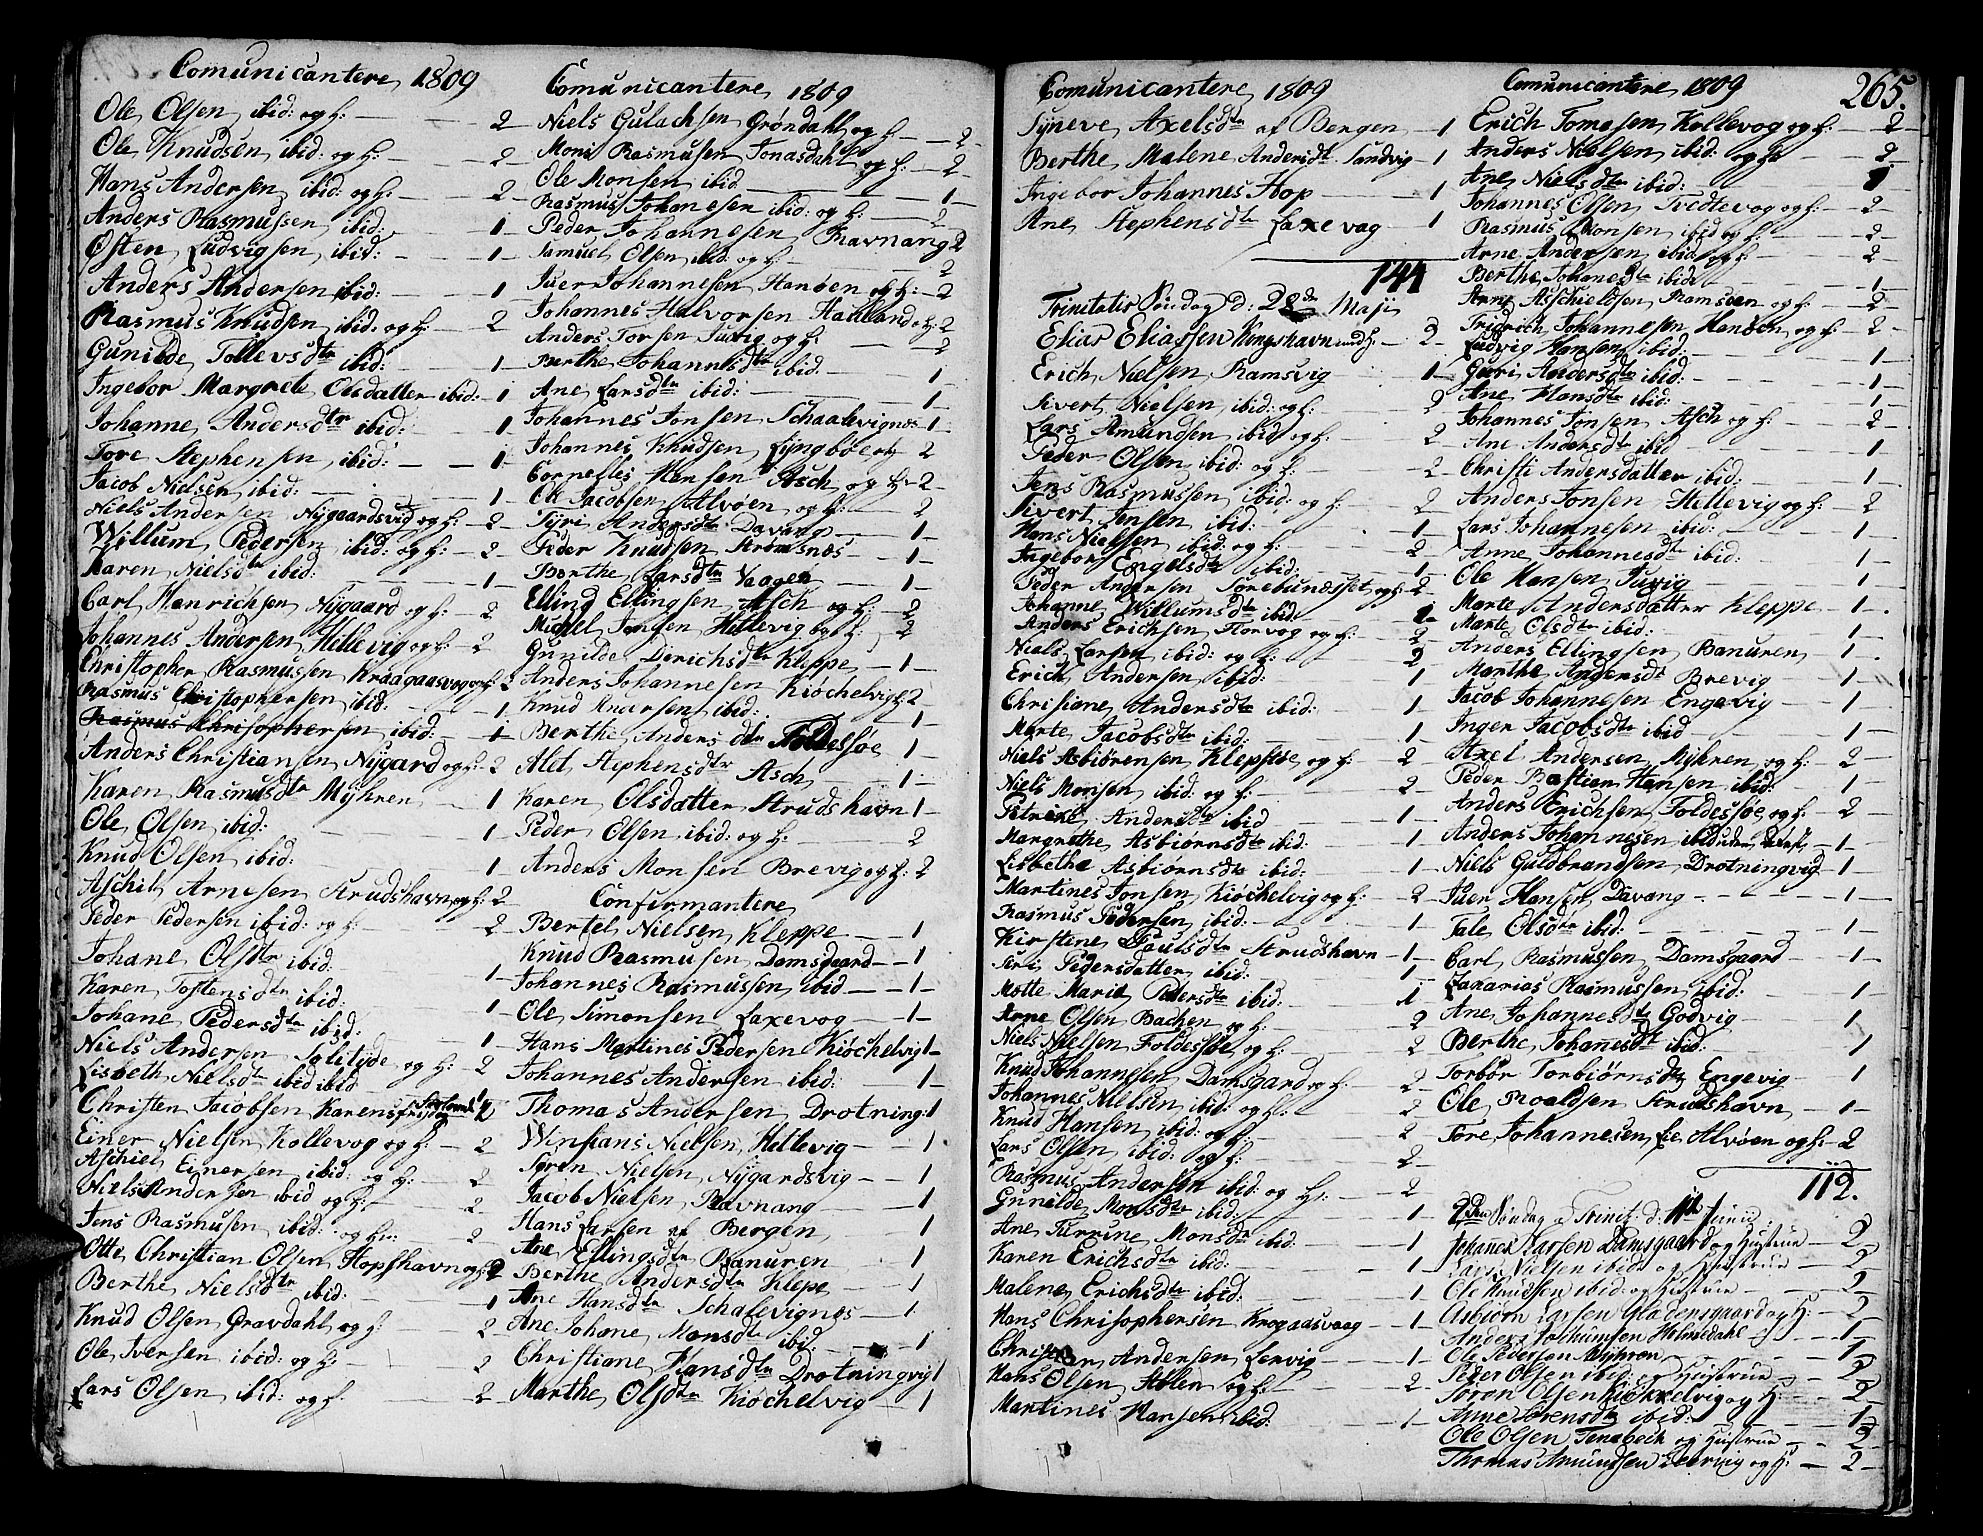 Comunicantere 1809
Ole Olsen ibid: og H: — 2
Ole Knudsen ibid: og H: — 2
Hans Andersen ibid: og H: — 2
Anders Rasmussen ibid: — 1
Østen Ludvigsen ibid: — 1
Anders Andersen ibid: — 1
Rasmus Knudsen ibid: og H: — 2
Gunilde Tollevsdtr ibid: — 1
Ingebor Margrete Olsdatter ibid: 1
Johanne Andersdtr ibid: 1
Tore Stephensen ibid: — 1
Jacob Nielsen ibid: — 1
Niels Andersen Nygaardsvig og H: — 2
Willum Pedersen ibid: og H: — 2
Karen Nielsdtr ibid: — 1
Carl Henrichsen Nygaard og H: 2
Johannes Andersen Hellevig og H: 2
Christopher Rasmussen Kraagaasvog og H: 2
Rasmus Christophersen ibid: — 1
Rasmus Chrisophersen ibid: — 1
Anders Christiansen Nygard og H: 2
Karen Rasmusdtr Myhren — 1
Ole Olsen ibid: — 1
Knud Olsen ibid: — 1
Aschil Arnesen Strudshavn og H: 2
Peder Pedersen ibid: og H: — 2
Johane Olsdtr ibid: — 1
Karen Tostensdtr ibid: — 1
Johane Pedersdtr ibid: — 1
Niels Andersen og H: 2
Lisbeth Nielsdtr ibid ibid
Christen Jacobsen 2
Einer Nielsen Kollevog og H: — 2
Aschiel Einersen ibid: og H: — 2
Niels Andersen ibid og H: — 2
Jens Rasmusen ibid: og H: — 2
Otte Christian Olsen Hopshavn og H: 2
Berthe Nielsdtr ibid: — 1
Knud Olsen Gravdahl og H — 2
Ole Iversen ibid: og H: — 2
Lars Olsen ibid: og H. — 2
Comunicantere 1809
Niels Gulachsen Grøndahl og H — 2
Mons Rasmusen Jonasdahl og H: — 2
Ole Monsen ibid — 1
Rasmus Johanesen ibid: og H: — 2
Peder Johannesen Ravnang 2
Samuel Olsen ibid og H: — 2
Iver Johannesen Hanøen og H: — 2
Johannes Halvorsen Haaland og H: 2
Anders Torsen Juvig og H: — 2
Berthe Johannisdtr ibid. — 1
Ane Larsdtr ibid: — 1
Johannes Jonsen Schaalevignæs — 1
Johannes Knudsen Lyngbøe og 2
Cornelles Hensen Asch og H: — 2
Ole Jacobsen Alvøen og H: 2
Tyri Andersdtr Davang — 1
Peder Knudsen Strømsnæs 1
Berthe Larsdtr Vaagen — 1
Elling Ellingsen Asch og H: — 2
Michel Jensen Hellevig og H: 2
Gunilde Derichsdtr Kleppe — 1
Anders Johannesen Kiøchelvig 2
Knud Knudsen ibid: — 1
Berthe Andersdtr Foldesøe 1
Alet Stephensdtr Asch — 1
Karen Olsdatter Strudshavn 1
Peder Olsen ibid: og H: — 2
Anders Monsen Brevig og H: 2
Confermantere
Bertel Nielsen Kleppe — 1
Knud Rasmusen Damsgaard — 1
Johannes Rasmussen ibid — 1
Ole Simonsen Laxevog — 1
Hans Martines Pedersen Kiøchelvig 1
Johannes Andersen ibid: 1
Thomas Andersen Drotning: 1
Winsians Nielsen Hellevig — 1
Søren Nielsen Nygardsvig — 1
Jacob Nielsen Ravnang — 1
Hans Larsen af Bergen 1
Ane Ellingsdtr Ranuren 1
Berthe Andersdtr Klepe — 1
Ane Hansdtr Schalevignæs — 1
Ane Johane Monsdtr ibid. — 1
Christiane Hansdtr Drotningvig 1
Marthe Olsdtr Kiøchelvig — 1
Comunicantere 1809
Syneve Axelsdtr af Bergen — 1
Berthe Malene Andersdt. Sandvig — 1
Ingebor Johannes Hop — 1
Ane Stephensdtr Laxevag — 1
144
Trinitatis Søndag d: 28de Maji
Elias Eliassen Kongshavn og H: — 2
Erich Nielsen Ramsvig — 1
Sivert Nielsen ibid: og H: 2
Lars Amundsen ibid og H: 2
Peder Olsen ibid: og H: — 2
Jens Rasmussen ibid: og H: 2
Sivert Jensen ibid: — 1
Hans Nielsen ibid: og H: — 2
Ingebor Engelsdtr ibid: — 1
Peder Andersen og H: 2
Johanne Willumsdtr ibid 1
Anders Erichsen Florvog og H: — 2
Niels Larsen ibid: og H: — 2
Erich Andersen ibid: — 1
Chrisiane Andersdtr ibid: 1
Marte Jacobsdtr ibid: — 1
Niels Asbiørensen Klepsøe og H: 2
Niels Monsen ibid: og H: — 2
Petrine Andersdtr ibid — 1
Margrethe Asbiørnsdtr ibid: 1
Lisbethe Asbiørnsdtr ibid: 1
Martines Jonsen Kiøchelvig og H: 2
Rasmus Pedersen ibid: — 1
Kirstene Paulsdtr Strudshavn — 1
Siri Pedersdatter ibid: 1
Motte Marie Pedersdtr ibid: 1
Arne Olsen Bachen og H: 2
Niels Nielsen Foldesøe og H: 2
Knud Johannesen Damsgard og H: 2
Johannes Nielsen ibid: og H: 2
Knud Hansen ibid: og H: 2
Lars Olsen ibid: og H: — 2
Rasmus Andersen ibid: og H: — 2
Gunilde Monsdtr ibid: — 1
Ane Turrine Monsdtr ibid: 1
Karen Erichsdtr ibid: — 1
Malene Erichsdtr ibid: 1
Hans Chrisophersen Krogaasvaag — 1
Andersen Lervig — 1
Hans Olsen Holen og H: — 2
Martines Hansen ibid. — 1
Comunicantere 1809
265.
Erich Tomesen Kollevog og H: — 2
Anders Nielsen ibid: og H — 2
Ane Nielsdtr ibid: 1
Johannes Olsen Tvedtevog og H: — 2
Rasmus Monsen ibid og H: — 2
Arne Andersen ibid og H: 2
Berthe Johanesdt ibid: 1
Arne Aschieldsen Ramsøen og H: — 2
Fridrich Johannesen Hanøen og H: — 2
Ludvig Hansen ibid: — 1
Guri Andersdtr ibid: — 1
Ane Hansdtr ibid: — 1
Johannes Jonsen Asch og H: — 2
Ane Andersdtr ibid 1
Christi Andersdatter ibid: 1
Anders Jonsen Hellevig og H: 2
Lars Johannesen ibid: — 1
Anne Johannesdtr ibid: 1
Ole Hansen Juvig — 1
Marte Andersdatter Kleppe — 1
Marte Olsdtr ibid: — 1
Anders Ellingsen Ranuren 1
Marthe Andersdt Brevig — 1
Jacob Johannesen Engevig — 1
Inger Jacobsdtr ibid — 1
Axel Andersen Myhren og H: 2
Peder Bastian Hansen ibid: 1
Anders Erichsen Foldesøe og H: 2
Anders Johannesen ibid — 1
Niels Guldbrandsen Drotningvig 1
Iver Hansen Davang — 1
Tale Olsdtr ibid: — 1
Carl Rasmussen Damsgaard — 1
Zakarias Rasmussen ibid: 1
Ane Johannesdtr Godvig 1
Berthe Johanesdt ibid: — 1
Torbør Torbiørnsdtr Engevig — 1
Ole Roaldsen Strudshavn — 1
Tore Johannesen Le Alvøen og H: 2
112.
2den Søndag e Trinit: d: 11te Junii
Johannes Larsen Damsgaard og Hustrue — 2
Nielsen ibid: og Hustrue — 2
Ole Knudsen ibid: og Hustrue — 2
Asbiørn Larsen og H: 2
Anders Jochumsen Holmedahl — 1
Ole Pedersen Myhren — 1
Peter Olsen ibid: og Hustrue — 2
Søren Olsen Kiøkkelvig og H: 2
Anne Sørensdtr ibid: — 1
Ole Olsen Tenebech og Hustrue — 2
Thomas Amundsen og H: — 2